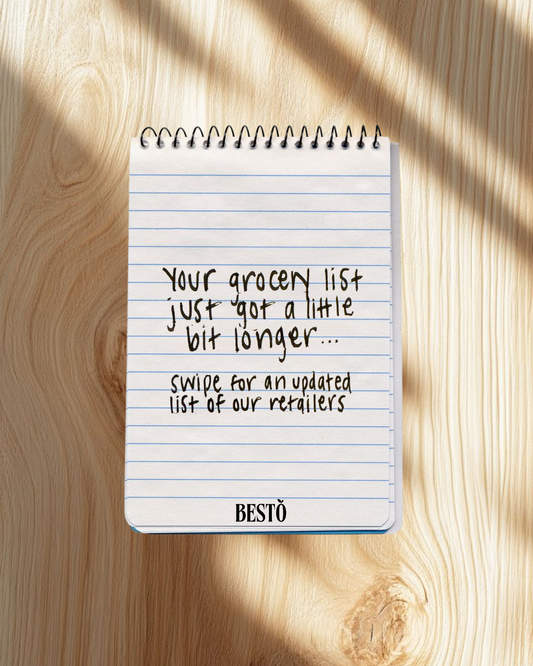 Your grocery list
just got a little
bit longer...
swipe for an updated
list of our retailers
BESTŎ